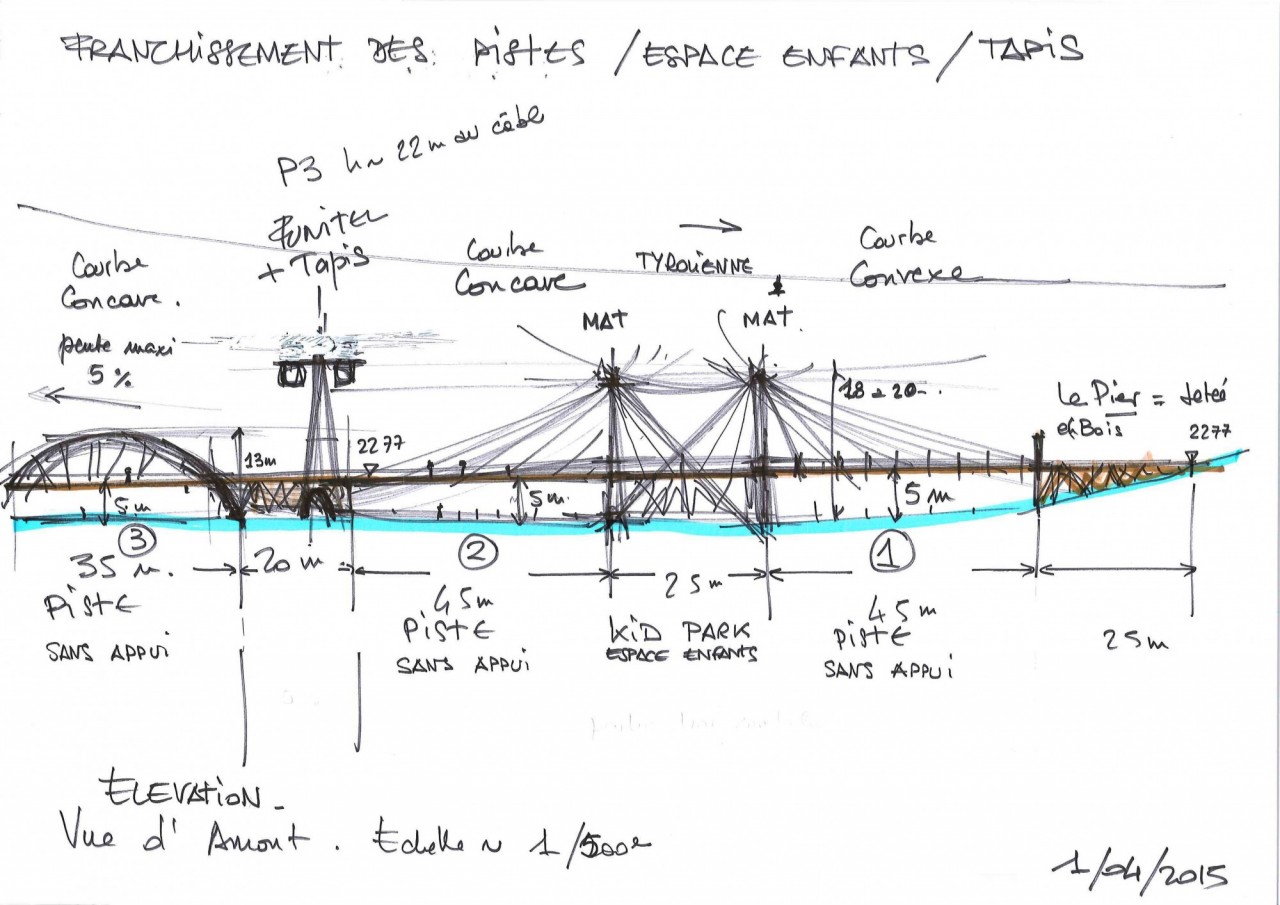 FRANCHISSEMENT DES PISTES / ESPACE ENFANTS / TAPIS
P3 h~ 22m au câble
FUNITEL
+ Tapis
Courbe
Concave.
pente maxi
5 %
Courbe
Concave
TYROLIENNE
Courbe
Convexe
MAT
MAT.
18 à 20-.
Le Pier = Jeteé
en Bois
2277
13m
2277
5m
5m.
5m
3
2
1
35 m.
20 m
45m
25m
45m
25m
PISTE
SANS APPUI
PISTE
SANS APPUI
KID PARK
ESPACE ENFANTS
PISTE
SANS APPUI
ELEVATION_
Vue d'Amont. Echelle ~ 1/500e
1/04/2015